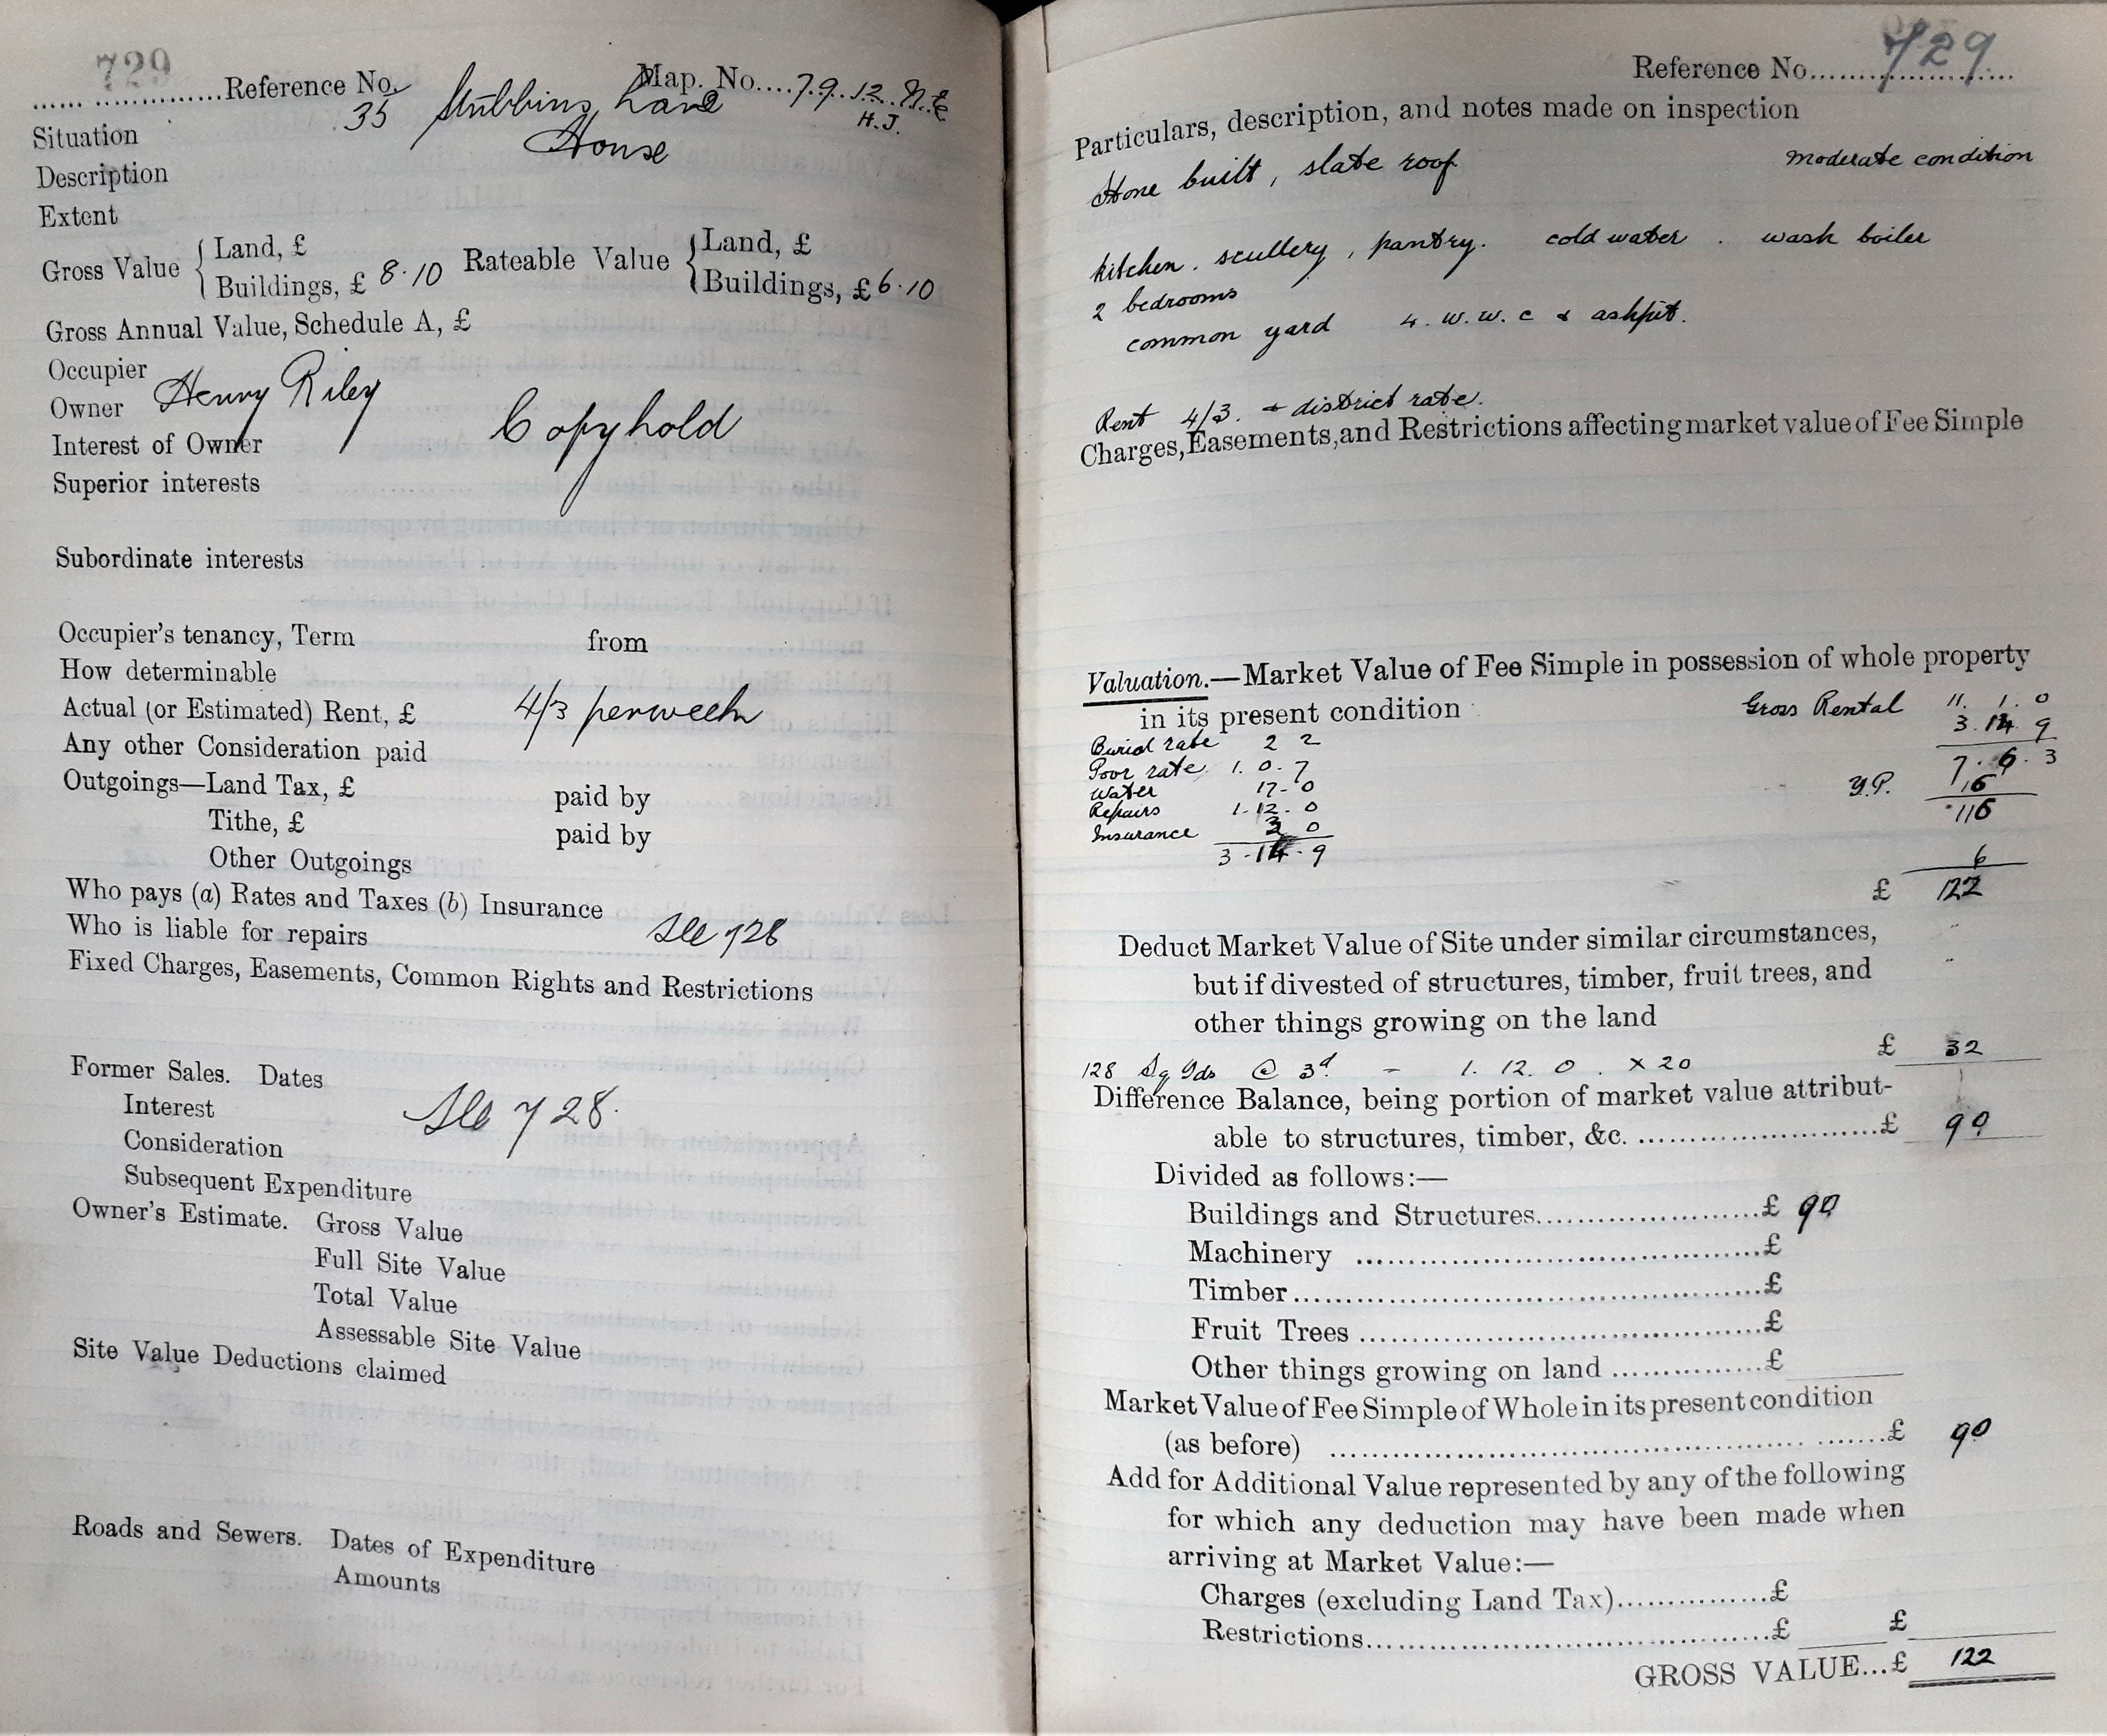 729
Reference No. Map. No....79.12.N.E
35 Stubbins Lane H.J.
Situation
House
Description
Extent
Gross Value { Land, £ Rateable Value { Land, £
Buildings, £ 8.10 Buildings, £ 6.10
Gross Annual Value, Schedule A, £
Occupier
Owner Henry Riley
Interest of Owner Copyhold
Superior interests
Subordinate interests
Occupier's tenancy, Term from
How determinable
Actual (or Estimated) Rent, £ 4/3 perweek
Any other Consideration paid
Outgoings—Land Tax, £ paid by
Tithe, £ paid by
Other Outgoings
Who pays (a) Rates and Taxes (b) Insurance
Who is liable for repairs See 728
Fixed Charges, Easements, Common Rights and Restrictions
Former Sales. Dates
Interest See 728.
Consideration
Subsequent Expenditure
Owner's Estimate. Gross Value
Full Site Value
Total Value
Assessable Site Value
Site Value Deductions claimed
Roads and Sewers. Dates of Expenditure
Amounts
Reference No. 729
Particulars, description, and notes made on inspection
Stone built, slate roof moderate condition
kitchen. scullery, pantry. cold water. wash boiler
2 bedrooms
common yard 4. w.w.c & ashpit.
Rent 4/3. + district rate.
Charges, Easements, and Restrictions affecting market value of Fee Simple
Valuation.—Market Value of Fee Simple in possession of whole property
in its present condition Gross Rental 11. 1. 0
Burial rate 2 2 3. 14 9
Poor rate. 1. 0. 7 7. 6. 3
Water 17-0 Y.P. 16
Repairs 1.12.0 116
Insurance 3 0
3-14-9 6
£ 122
Deduct Market Value of Site under similar circumstances,
but if divested of structures, timber, fruit trees, and
other things growing on the land
128 Sq Yds @ 3d - 1. 12. 0. x 20 £ 32
Difference Balance, being portion of market value attribut-
able to structures, timber, &c. £ 90
Divided as follows:—
Buildings and Structures £ 90
Machinery £
Timber £
Fruit Trees £
Other things growing on land £
Market Value of Fee Simple of Whole in its present condition
(as before) £ 90
Add for Additional Value represented by any of the following
for which any deduction may have been made when
arriving at Market Value:—
Charges (excluding Land Tax) £
Restrictions £ £
GROSS VALUE...£ 122